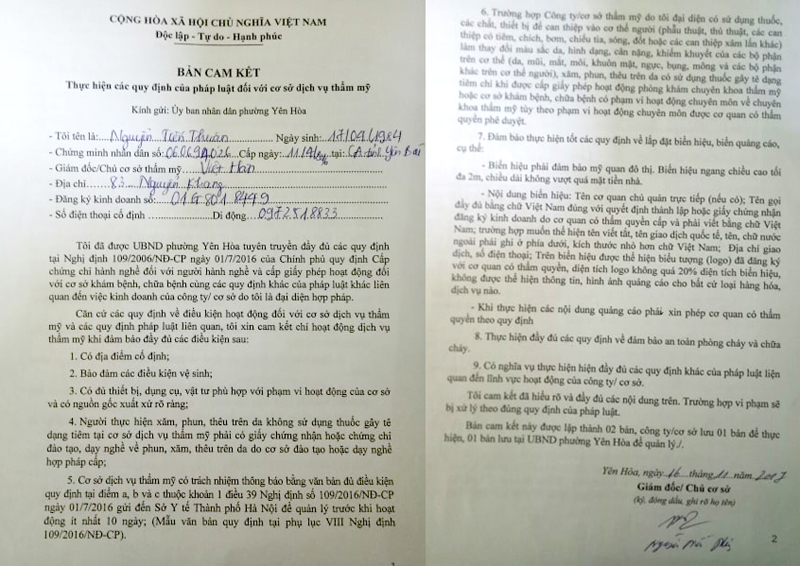 CỘNG HÒA XÃ HỘI CHỦ NGHĨA VIỆT NAM
Độc lập - Tự do - Hạnh phúc
BẢN CAM KẾT
Thực hiện các quy định của pháp luật đối với cơ sở dịch vụ thẩm mỹ
Kính gửi: Ủy ban nhân dân phường Yên Hòa
- Tôi tên là: Nguyễn Tiến Thuân Ngày sinh: 17/09/1984
- Chứng minh nhân dân số: Cấp ngày: tại: CA tỉnh Yên Bái
- Giám đốc/Chủ cơ sở thẩm mỹ Việt Hàn
- Địa chỉ 83 Nguyễn Khang
- Đăng ký kinh doanh số: 01G8018499
- Số điện thoại cố định Di động 0972518833
Tôi đã được UBND phường Yên Hòa tuyên truyền đầy đủ các quy định
tại Nghị định 109/2006/NĐ-CP ngày 01/7/2016 của Chính phủ quy định Cấp
chứng chỉ hành nghề đối với người hành nghề và cấp giấy phép hoạt động đối
với cơ sở khám bệnh, chữa bệnh cùng các quy định khác của pháp luật khác liên
quan đến việc kinh doanh của công ty/ cơ sở do tôi là đại diện hợp pháp.
Căn cứ các quy định về điều kiện hoạt động đối với cơ sở dịch vụ thẩm
mỹ và các quy định pháp luật liên quan, tôi xin cam kết chỉ hoạt động dịch vụ
thẩm mỹ khi đảm bảo đầy đủ các điều kiện sau:
1. Có địa điểm cố định;
2. Bảo đảm các điều kiện vệ sinh;
3. Có đủ thiết bị, dụng cụ, vật tư phù hợp với phạm vi hoạt động của cơ sở
và có nguồn gốc xuất xứ rõ ràng;
4. Người thực hiện xăm, phun, thêu trên da không sử dụng thuốc gây tê
dạng tiêm tại cơ sở dịch vụ thẩm mỹ phải có giấy chứng nhận hoặc chứng chỉ
đào tạo, dạy nghề về phun, xăm, thêu trên da do cơ sở đào tạo hoặc dạy nghề
hợp pháp cấp;
5. Cơ sở dịch vụ thẩm mỹ có trách nhiệm thông báo bằng văn bản đủ điều kiện
quy định tại điểm a, b và c thuộc khoản 1 điều 39 Nghị định số 109/2016/NĐ-CP
ngày 01/7/2016 gửi đến Sở Y tế Thành phố Hà Nội để quản lý trước khi hoạt
động ít nhất 10 ngày; (Mẫu văn bản quy định tại phụ lục VIII Nghị định
109/2016/NĐ-CP).
6. Trường hợp Công ty/cơ sở thẩm mỹ do tôi đại diện có sử dụng thuốc,
các chất, thiết bị để can thiệp vào cơ thể người (phẫu thuật, thủ thuật, các can
thiệp có tiêm, chích, bơm, chiếu tia, sóng, đốt hoặc các can thiệp xâm lấn khác)
làm thay đổi màu sắc da, hình dạng, cân nặng, khiếm khuyết của các bộ phận
trên cơ thể (da, mũi, mắt, môi, khuôn mặt, ngực, bụng, mông và các bộ phận
khác trên cơ thể người), xăm, phun, thêu trên da có sử dụng thuốc gây tê dạng
tiêm chỉ khi được cấp giấy phép hoạt động phòng khám chuyên khoa thẩm mỹ
hoặc cơ sở khám bệnh, chữa bệnh có phạm vi hoạt động chuyên môn về chuyên
khoa thẩm mỹ tùy theo phạm vi hoạt động chuyên môn được cơ quan có thẩm
quyền phê duyệt.
7. Đảm bảo thực hiện tốt các quy định về lắp đặt biển hiệu, biển quảng cáo,
cụ thể:
- Biển hiệu phải đảm bảo mỹ quan đô thị. Biển hiệu ngang chiều cao tối
đa 2m, chiều dài không vượt quá mặt tiền nhà.
- Nội dung biển hiệu: Tên cơ quan chủ quản trực tiếp (nếu có); Tên gọi
đầy đủ bằng chữ Việt Nam đúng với quyết định thành lập hoặc giấy chứng nhận
đăng ký kinh doanh do cơ quan có thẩm quyền cấp và phải viết bằng chữ Việt
Nam; trường hợp muốn thể hiện tên viết tắt, tên giao dịch quốc tế, tên, chữ nước
ngoài phải ghi ở phía dưới, kích thước nhỏ hơn chữ Việt Nam; Địa chỉ giao
dịch, số điện thoại; Trên biển hiệu được thể hiện biểu tượng (logo) đã đăng ký
với cơ quan có thẩm quyền, diện tích logo không quá 20% diện tích biển hiệu,
không được thể hiện thông tin, hình ảnh quảng cáo cho bất cứ loại hàng hóa,
dịch vụ nào.
- Khi thực hiện các nội dung quảng cáo phải xin phép cơ quan có thẩm
quyền theo quy định
8. Thực hiện đầy đủ các quy định về đảm bảo an toàn phòng cháy và chữa
cháy.
9. Có nghĩa vụ thực hiện hiện đầy đủ các quy định khác của pháp luật liên
quan đến lĩnh vực hoạt động của công ty/ cơ sở.
Tôi cam kết đã hiểu rõ và đầy đủ các nội dung trên. Trường hợp vi phạm sẽ
bị xử lý theo đúng quy định của pháp luật.
Bản cam kết này được lập thành 02 bản, công ty/cơ sở lưu 01 bản để thực
hiện, 01 bản lưu tại UBND phường Yên Hòa để quản lý./.
Yên Hòa, ngày 16 tháng 11 năm 2017
Giám đốc/ Chủ cơ sở
(ký, đóng dấu, ghi rõ họ tên)
2